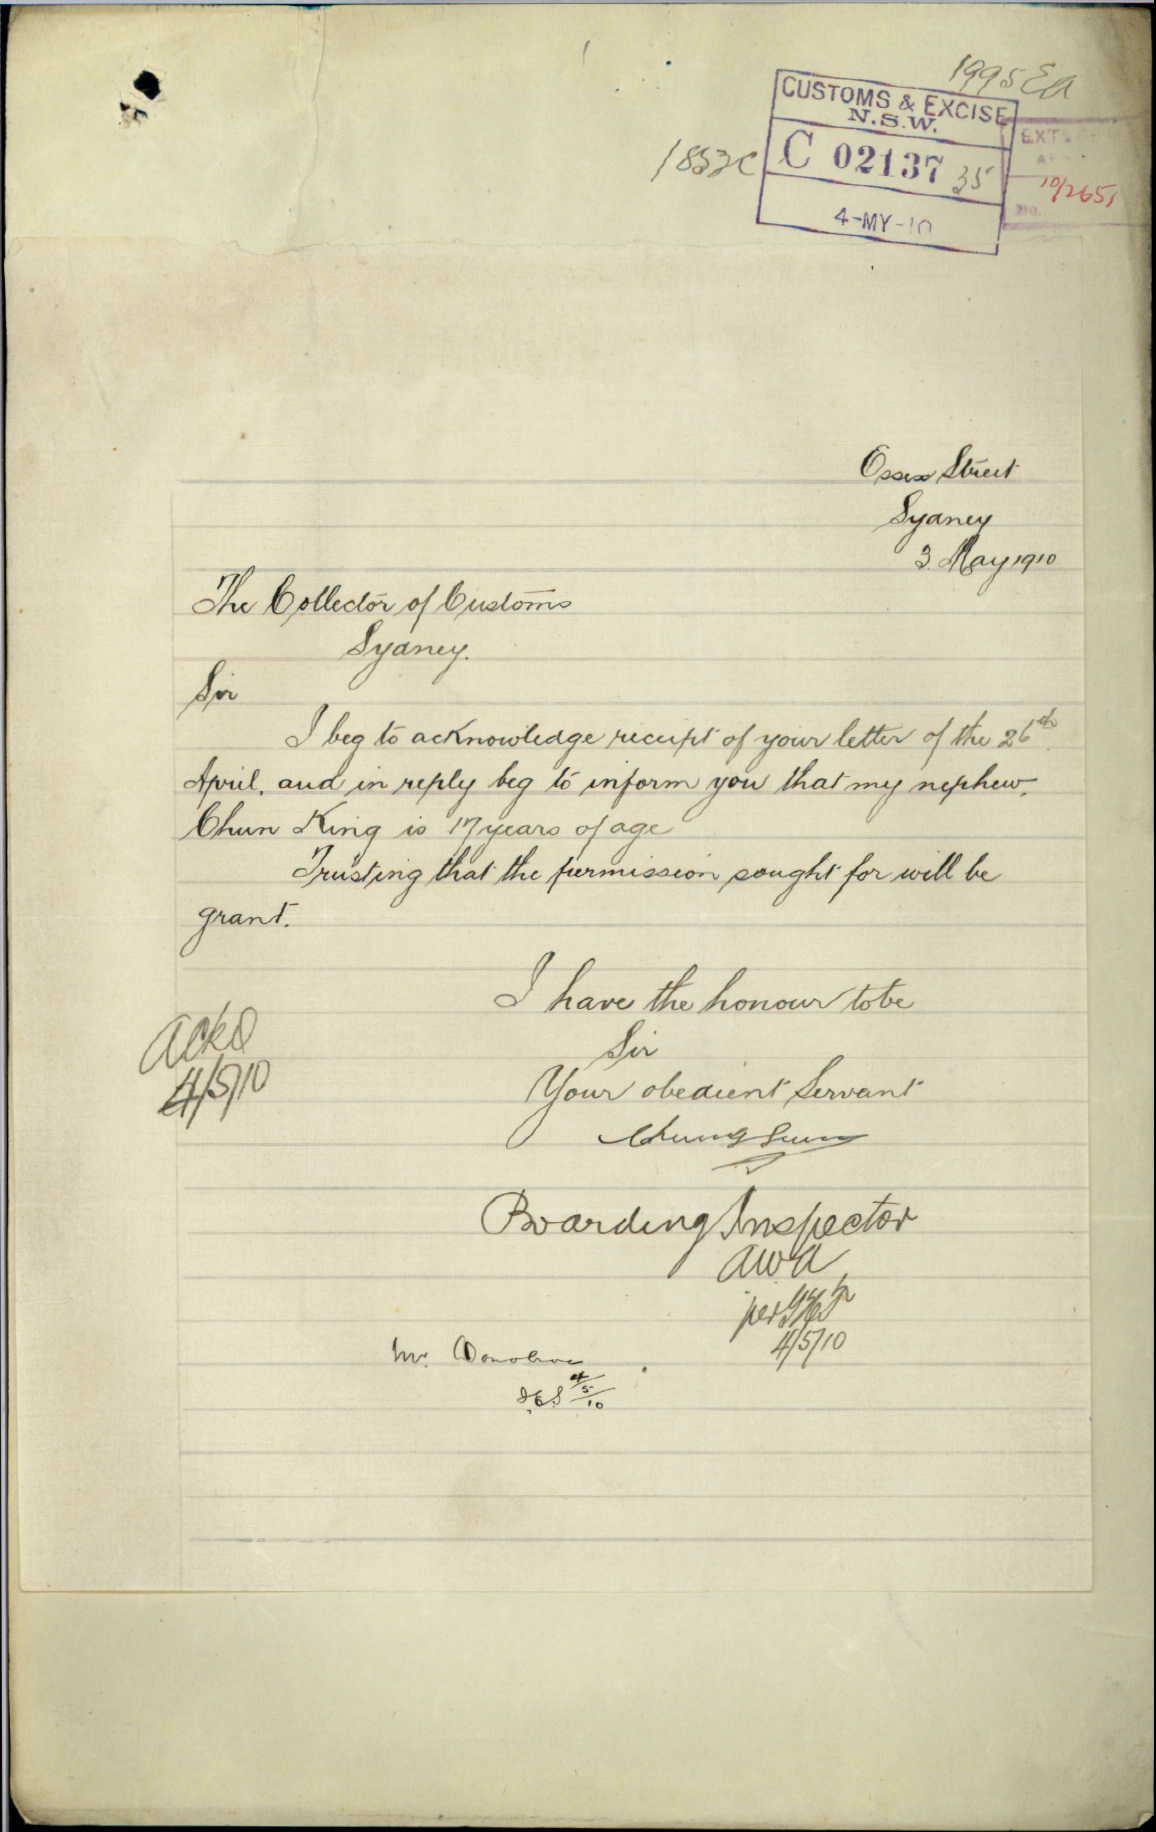 1995 EA
CUSTOMS & EXCISE
N.S.W.
1853c
C 02137 35
4-MY-10
EXT
10/2651
NO.
Essex Street
Sydney
3. May 1910
The Collector of Customs
Sydney.
Sir
I beg to acknowledge receipt of your letter of the 26th
April. and in reply beg to inform you that my nephew,
Chun King is 17 years of age
Trusting that the permission sought for will be
grant.
I have the honour to be
Sir
Your obedient Servant
Ackd
4/5/10
Boarding Inspector
AWA
per
4/5/10
Mr. Donohoe
4/5/10